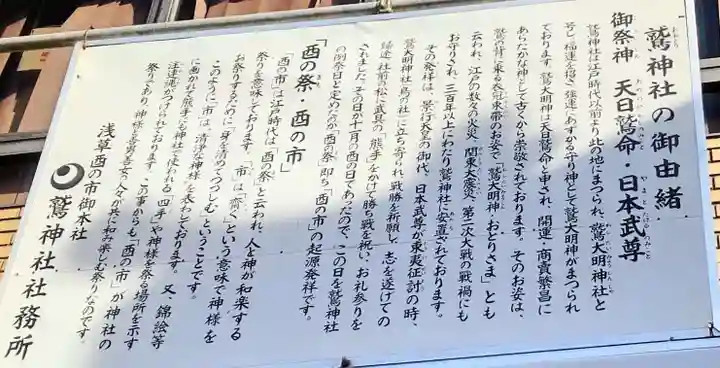 鷲神社の御由緒
御祭神 天日鷲命・日本武尊
鷲神社は江戸時代以前より此の地にまつられ、鷲大明神社と
号し「福運を招き強運」にあずかる守り神として鷲大明神がまつられ
ております。鷲大明神は天日鷲命と申され、開運・商賣繁昌に
あらたかな神として古くから崇敬されております。そのお姿は、
鷲の背に乗る衣冠束帯のお姿で「鷲大明神」「おとりさま」とも
云われ、江戸の数々の火災、関東大震災、第二次大戦の戦禍にも
お守りされ、三百年以上にわたり鷲神社に安置されております。
その発祥は、景行天皇の御代、日本武尊が東夷征討の時、
鷲大明神社「鳥の社」に立ち寄られ戦勝を祈願し、志を遂げての
帰途、社前の松に武具の「熊手」をかけて勝ち戦を祝い、お礼参りを
されました。その日が十一月の酉の日であったので、この日を鷲神社
の例祭日と定めたのが「酉の祭」即ち「酉の市」の起源発祥です。
「酉の祭・酉の市」
「酉の市」は江戸時代は「酉の祭」と云われ、人と神が和楽する
祭りを意味しております。「市」は「齋く」という意味で神様を
お祭りするために「身を清めてつつしむ」ということです。
このように「市」は「清浄な神様」を表わしております。又、錦絵等
に画かれて熊手にも神社で使われる「四手」や神様を祭る場所を示す
注連縄がつけられております。この事からも「酉の市」が神社の
祭りであり、神様と善男善女の人々が共に和み楽しむ祭りなのです。
浅草酉の市御本社
鷲神社社務所